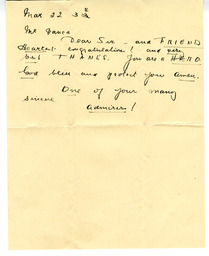 Mar 22 3
Mr
Dear Sir - and FRIEND
Heartiest congratulations! and
THANKS. You are a HERO
God bless and protect you amen.
One of your many
sincere
admirers!